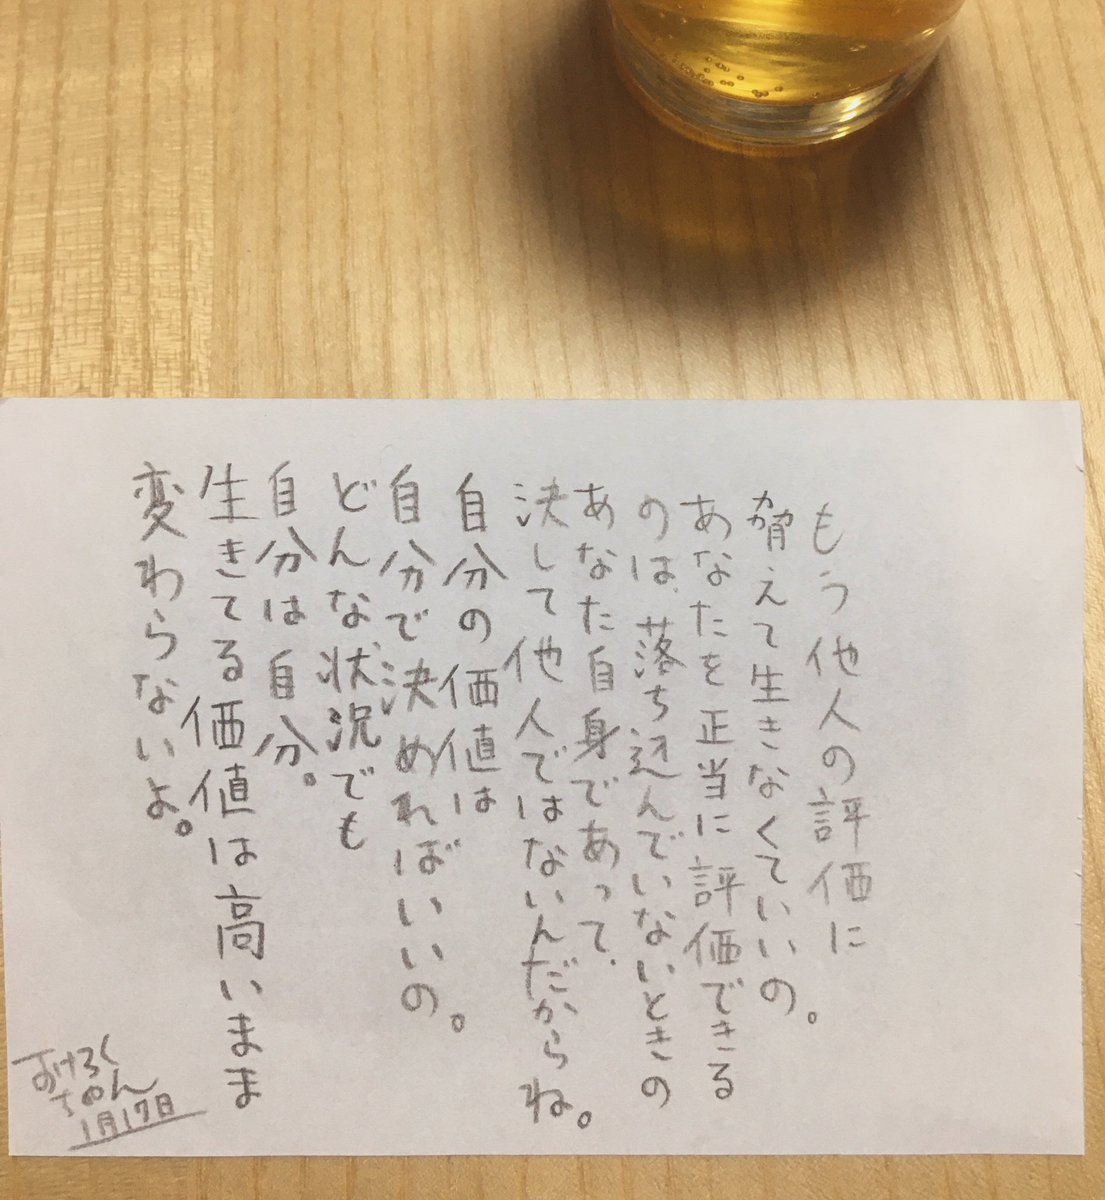 もう他人の評価に
脅えて生きなくていいの。
あなたを正当に評価できる
のは、落ち込んでいないときの
あなた自身であって、
決して他人ではないんだからね。
自分の価値は
自分で決めればいいの。
どんな状況でも
自分は自分。
生きてる価値は高いまま
変わらないよ。
おけろく
ちゅん
1月17日